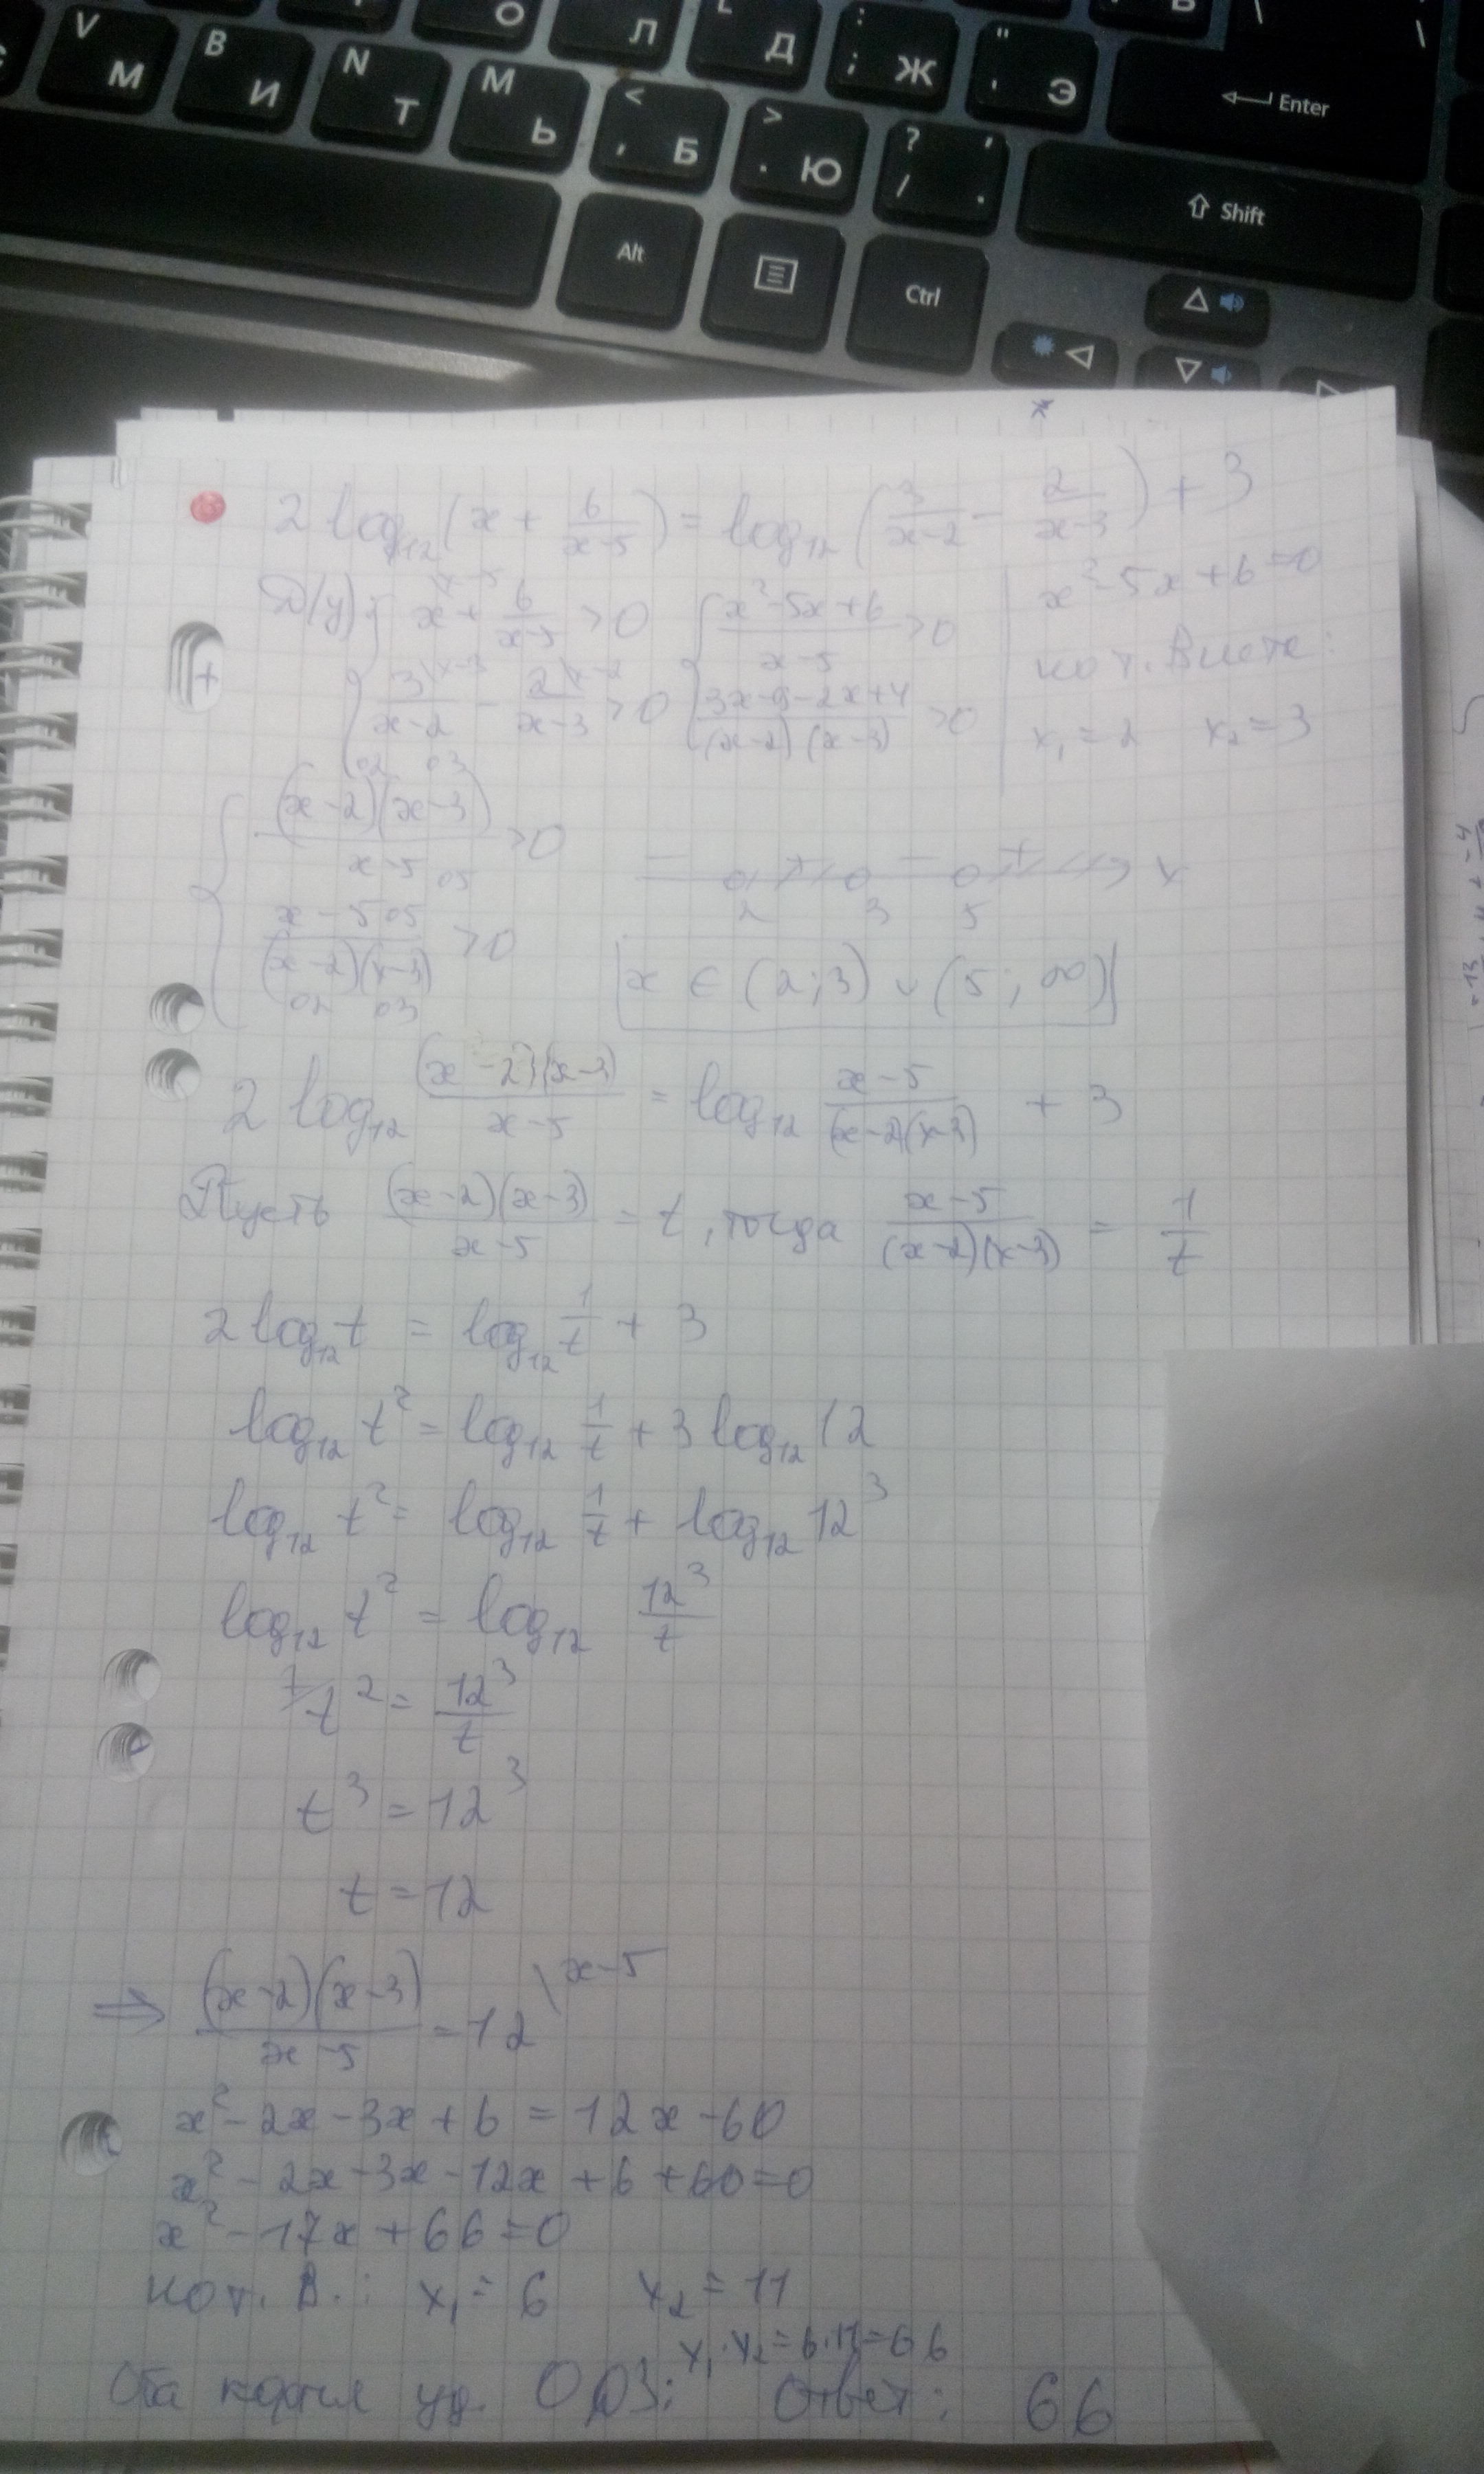 V М B И N Т M Ь < , Б > . Ю ? / , .
О Л Д : ; Ж " ' Э Enter
Alt Ctrl Shift
2 log₁₂(x + 6/(x-5)) = log₁₂(3/(x-2) - 2/(x-3)) + 3
D(y): { x + 6/(x-5) > 0 { (x²-5x+6)/(x-5) > 0 | x²-5x+6=0
{ 3/(x-2) - 2/(x-3) > 0 { (3x-9-2x+4)/((x-2)(x-3)) > 0 | по т. Виета:
x₁ = 2 x₂ = 3
{ (x-2)(x-3)/(x-5) > 0 - + - + x
2 3 5
{ (x-5)/((x-2)(x-3)) > 0 x ∈ (2;3) ∪ (5; ∞)
2 log₁₂ (x-2)(x-3)/(x-5) = log₁₂ (x-5)/((x-2)(x-3)) + 3
Пусть (x-2)(x-3)/(x-5) = t, тогда (x-5)/((x-2)(x-3)) = 1/t
2 log₁₂ t = log₁₂ 1/t + 3
log₁₂ t² = log₁₂ 1/t + 3 log₁₂ 12
log₁₂ t² = log₁₂ 1/t + log₁₂ 12³
log₁₂ t² = log₁₂ 12³/t
t² = 12³/t
t³ = 12³
t = 12
⇒ (x-2)(x-3)/(x-5) = 12 \x-5
x² - 2x - 3x + 6 = 12x - 60
x² - 2x - 3x - 12x + 6 + 60 = 0
x² - 17x + 66 = 0
по т. В.: x₁ = 6 x₂ = 11
x₁·x₂ = 6·11 = 66
Оба корня уд. ОДЗ; Ответ: 66